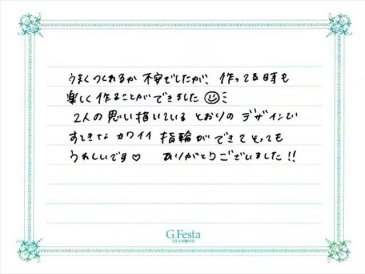 うまくつくれるか不安でしたが、作ってる時も
楽しく作ることができました
2人の思い描いているとおりのデザインで
すてきなカワイイ指輪ができてとっても
うれしいです♡ ありがとうございました!!
G.Festa